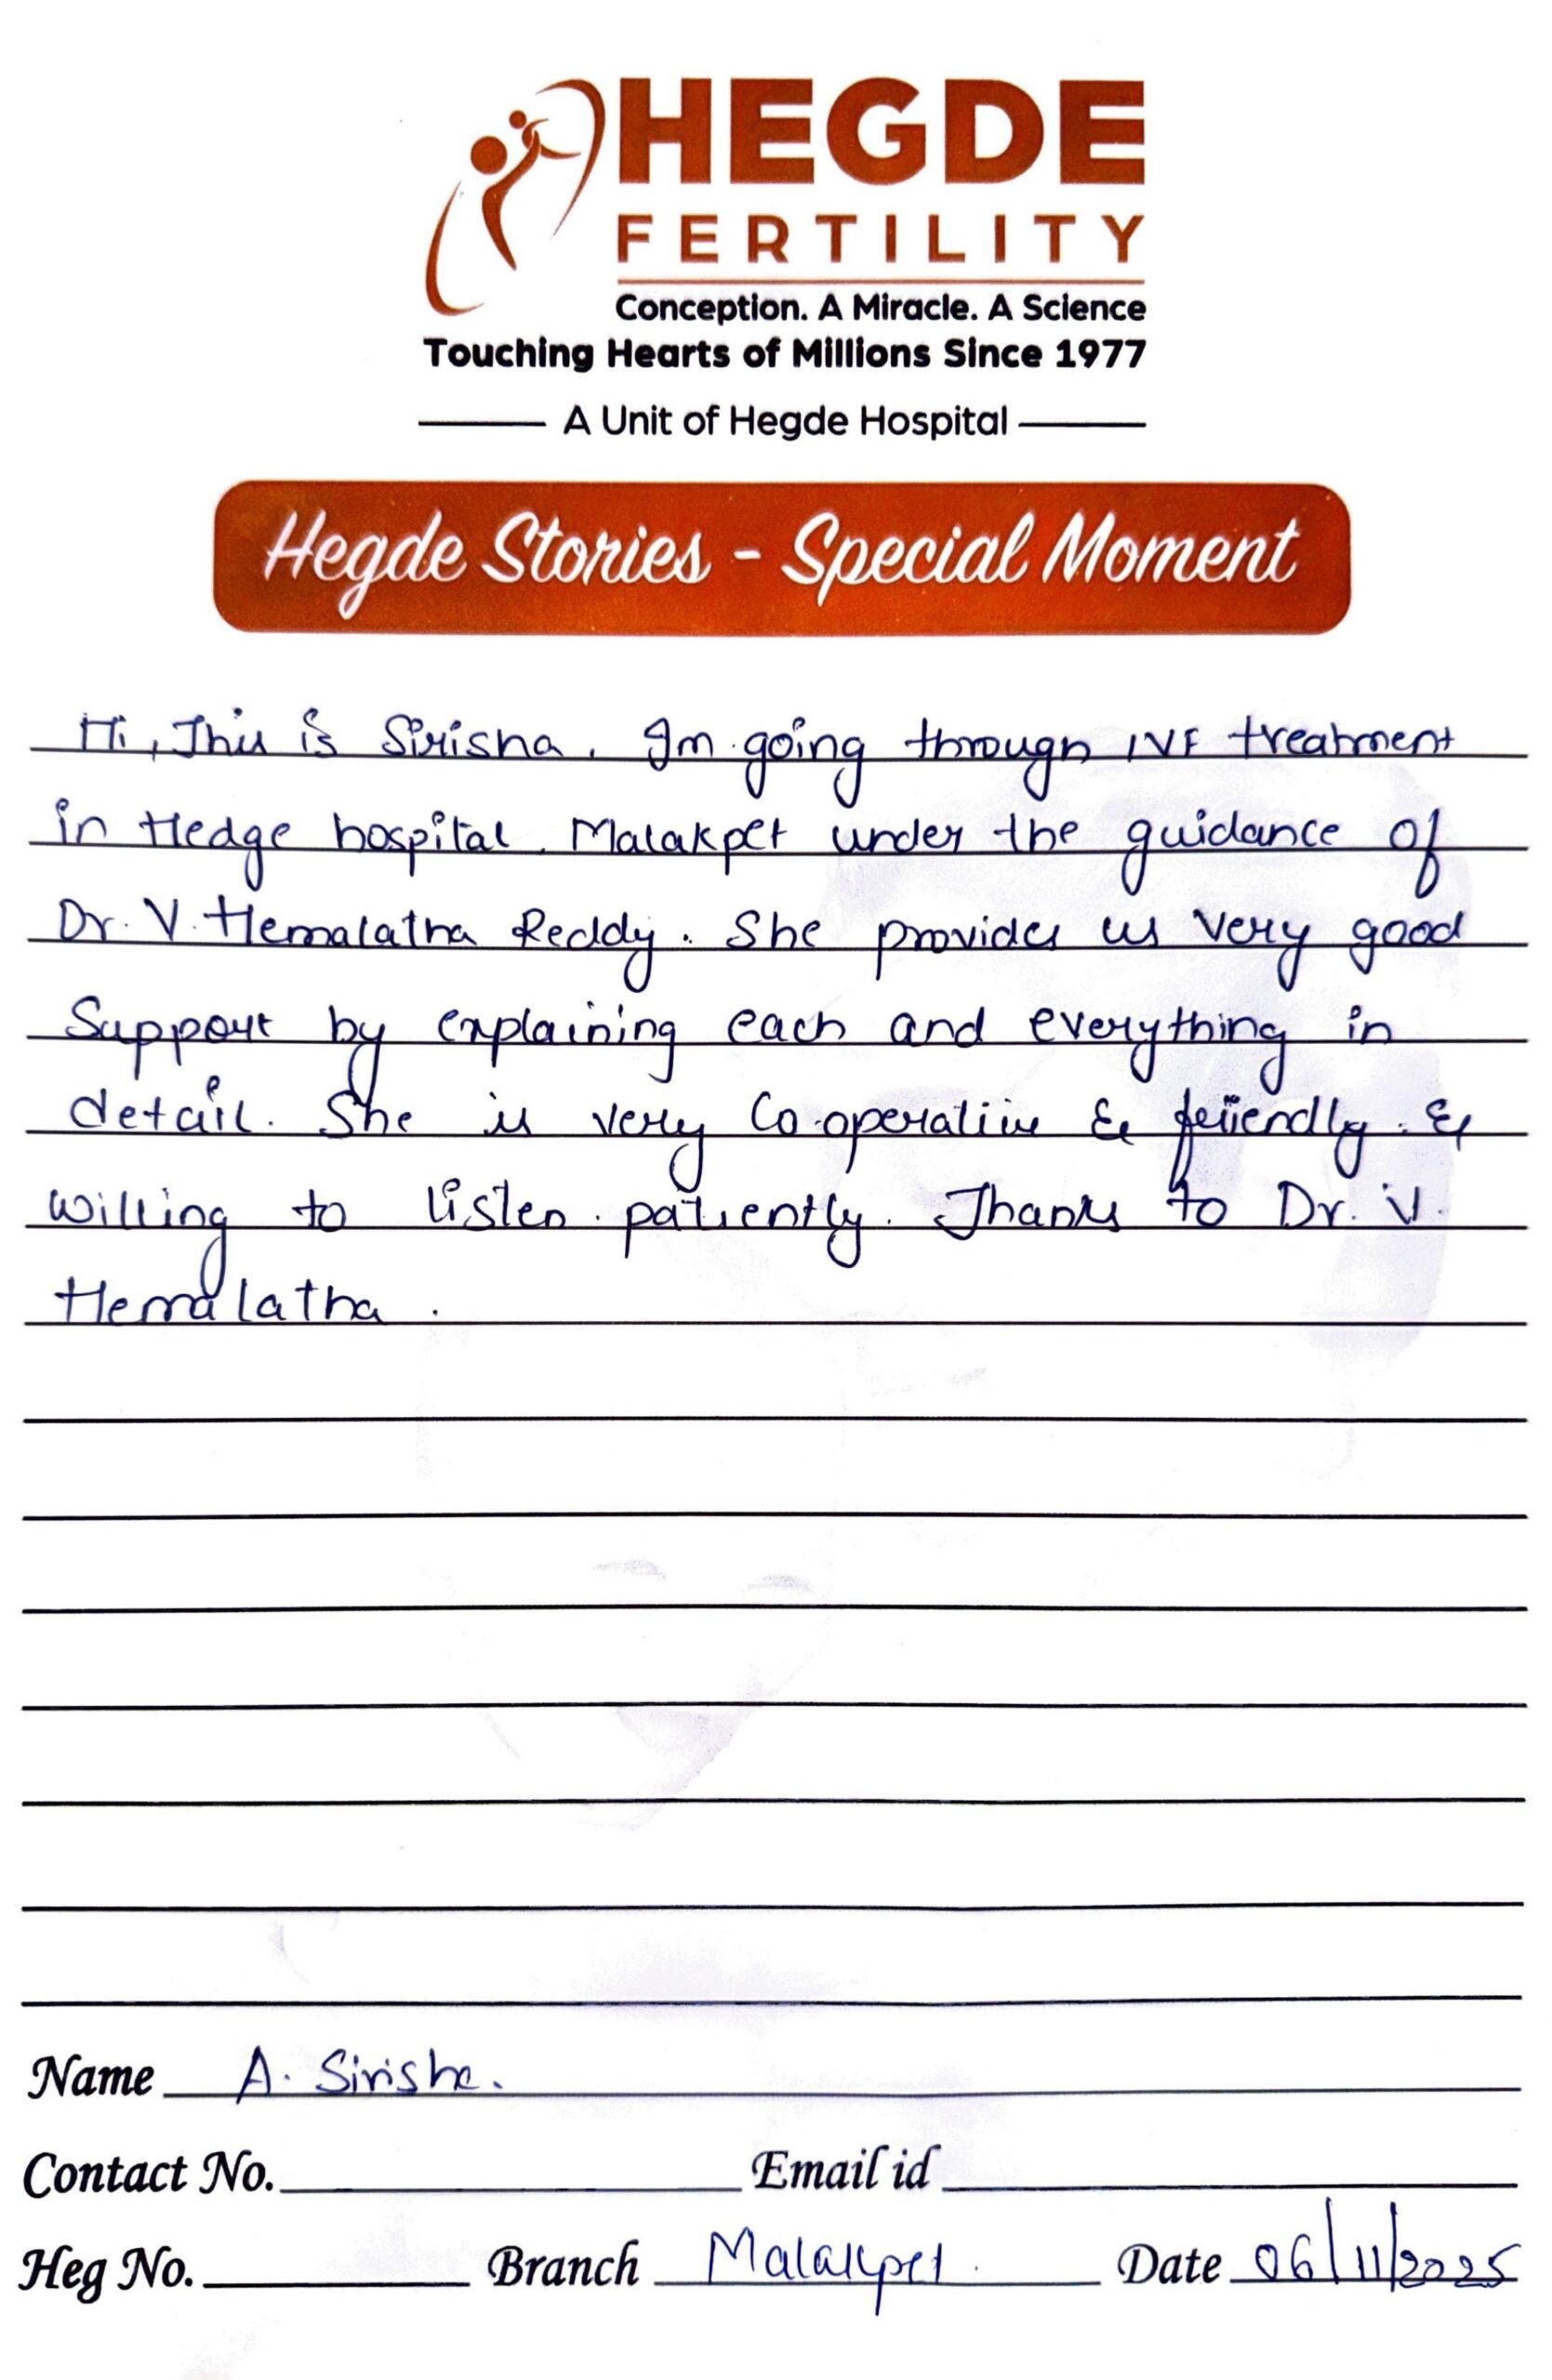 HEGDE
FERTILITY
Conception. A Miracle. A Science
Touching Hearts of Millions Since 1977
A Unit of Hegde Hospital
Hegde Stories - Special Moment
Hi, This is Sirisha. Im going through IVF treatment
in Hedge hospital Malakpet under the guidance of
Dr. V. Hemalatha Reddy. She provides us very good
Support by explaining each and everything in
detail. She is very Co-operative & friendly. &
willing to listen patiently. Thanks to Dr. V.
Hemalatha.
Name A. Sirisha.
Contact No. Email id
Heg No. Branch Malakpet. Date 06/11/2025